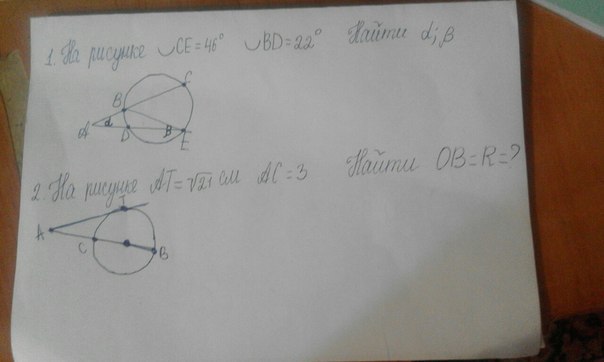 1. На рисунке ◡CE=46° ◡BD=22° Найти α; β
C
B
A α β
D E
2. На рисунке AT=√21 см AC=3 Найти OB=R=?
T
A
C B